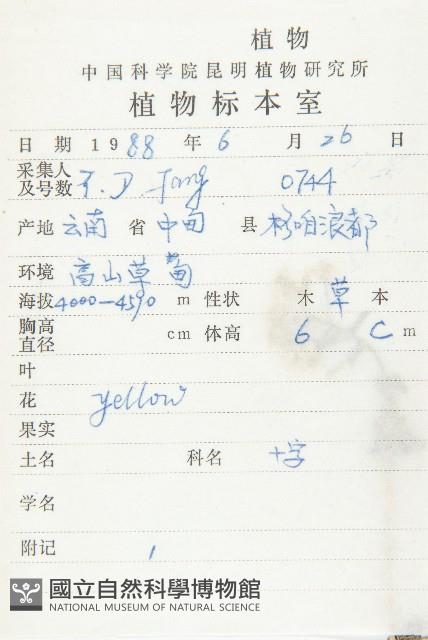 植物
中国科学院昆明植物研究所
植物标本室
日期 1988 年 6 月 26 日
采集人及号数 Y. D. Jang 0744
产地 云南 省 中甸 县 格咱浪都
环境 高山草甸
海拔 4000—4590 m 性状 木 草 本
胸高直径 cm 体高 6 cm
叶
花 yellow
果实
土名 科名 十字
学名
附记
國立自然科學博物館
NATIONAL MUSEUM OF NATURAL SCIENCE